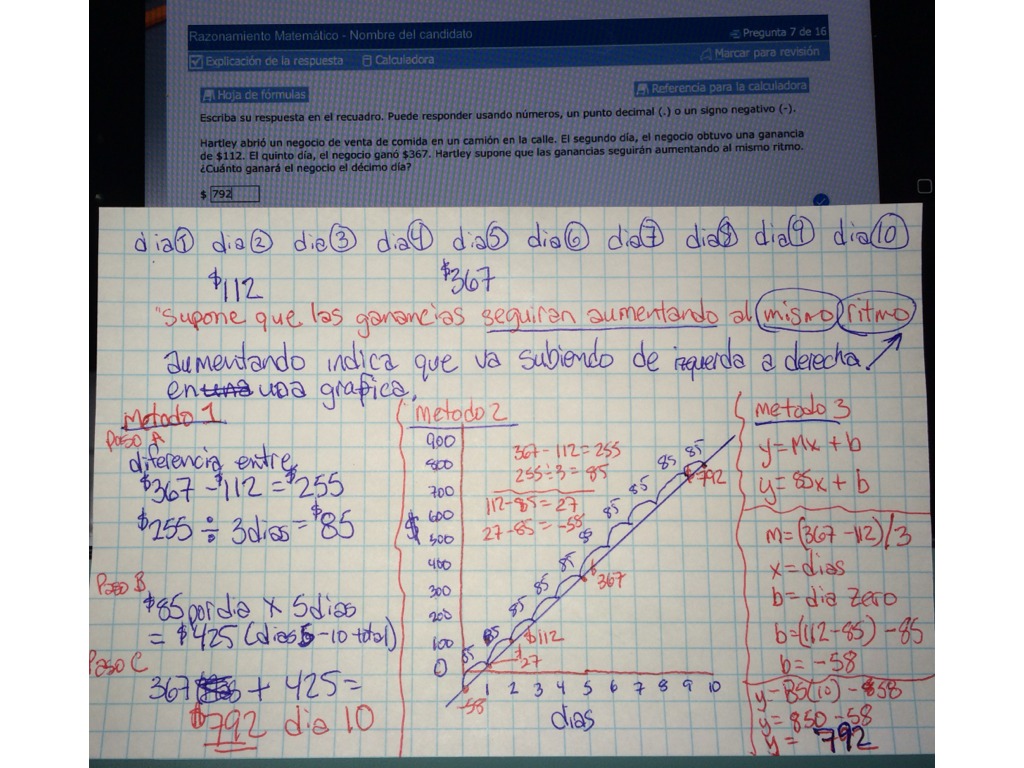 Razonamiento Matemático - Nombre del candidato
Pregunta 7 de 16
Explicación de la respuesta
Calculadora
Marcar para revisión
Hoja de fórmulas
Referencia para la calculadora
Escriba su respuesta en el recuadro. Puede responder usando números, un punto decimal (.) o un signo negativo (-).
Hartley abrió un negocio de venta de comida en un camión en la calle. El segundo día, el negocio obtuvo una ganancia
de $112. El quinto día, el negocio ganó $367. Hartley supone que las ganancias seguirán aumentando al mismo ritmo.
¿Cuánto ganará el negocio el décimo día?
$ 792
dia 1 dia 2 dia 3 dia 4 dia 5 dia 6 dia 7 dia 8 dia 9 dia 10
$112 $367
"Supone que las ganancias seguiran aumentando al mismo ritmo
aumentando indica que va subiendo de izquerda a derecha
en una una grafica.
Metodo 1
Paso A
diferencia entre
$367 - $112 = $255
$255 ÷ 3 dias = $85
Paso B
$85 por dia x 5 dias
= $425 (dias 5-10 total)
Paso C
367 + 425 =
$792 dia 10
metodo 2
900
800
700
600
$
500
400
300
200
100
0
367 - 112 = 255
255 ÷ 3 = 85
112-85 = 27
27-85 = -58
85 85 85 85 85 85 85 85 85 85
$792
$367
$112
$27
-58
1 2 3 4 5 6 7 8 9 10
dias
metodo 3
y = mx + b
y = 85x + b
m = (367 - 112)/3
x = dias
b = dia zero
b = (112-85) - 85
b = -58
y = 85(10) - 58
y = 850 - 58
y = 792